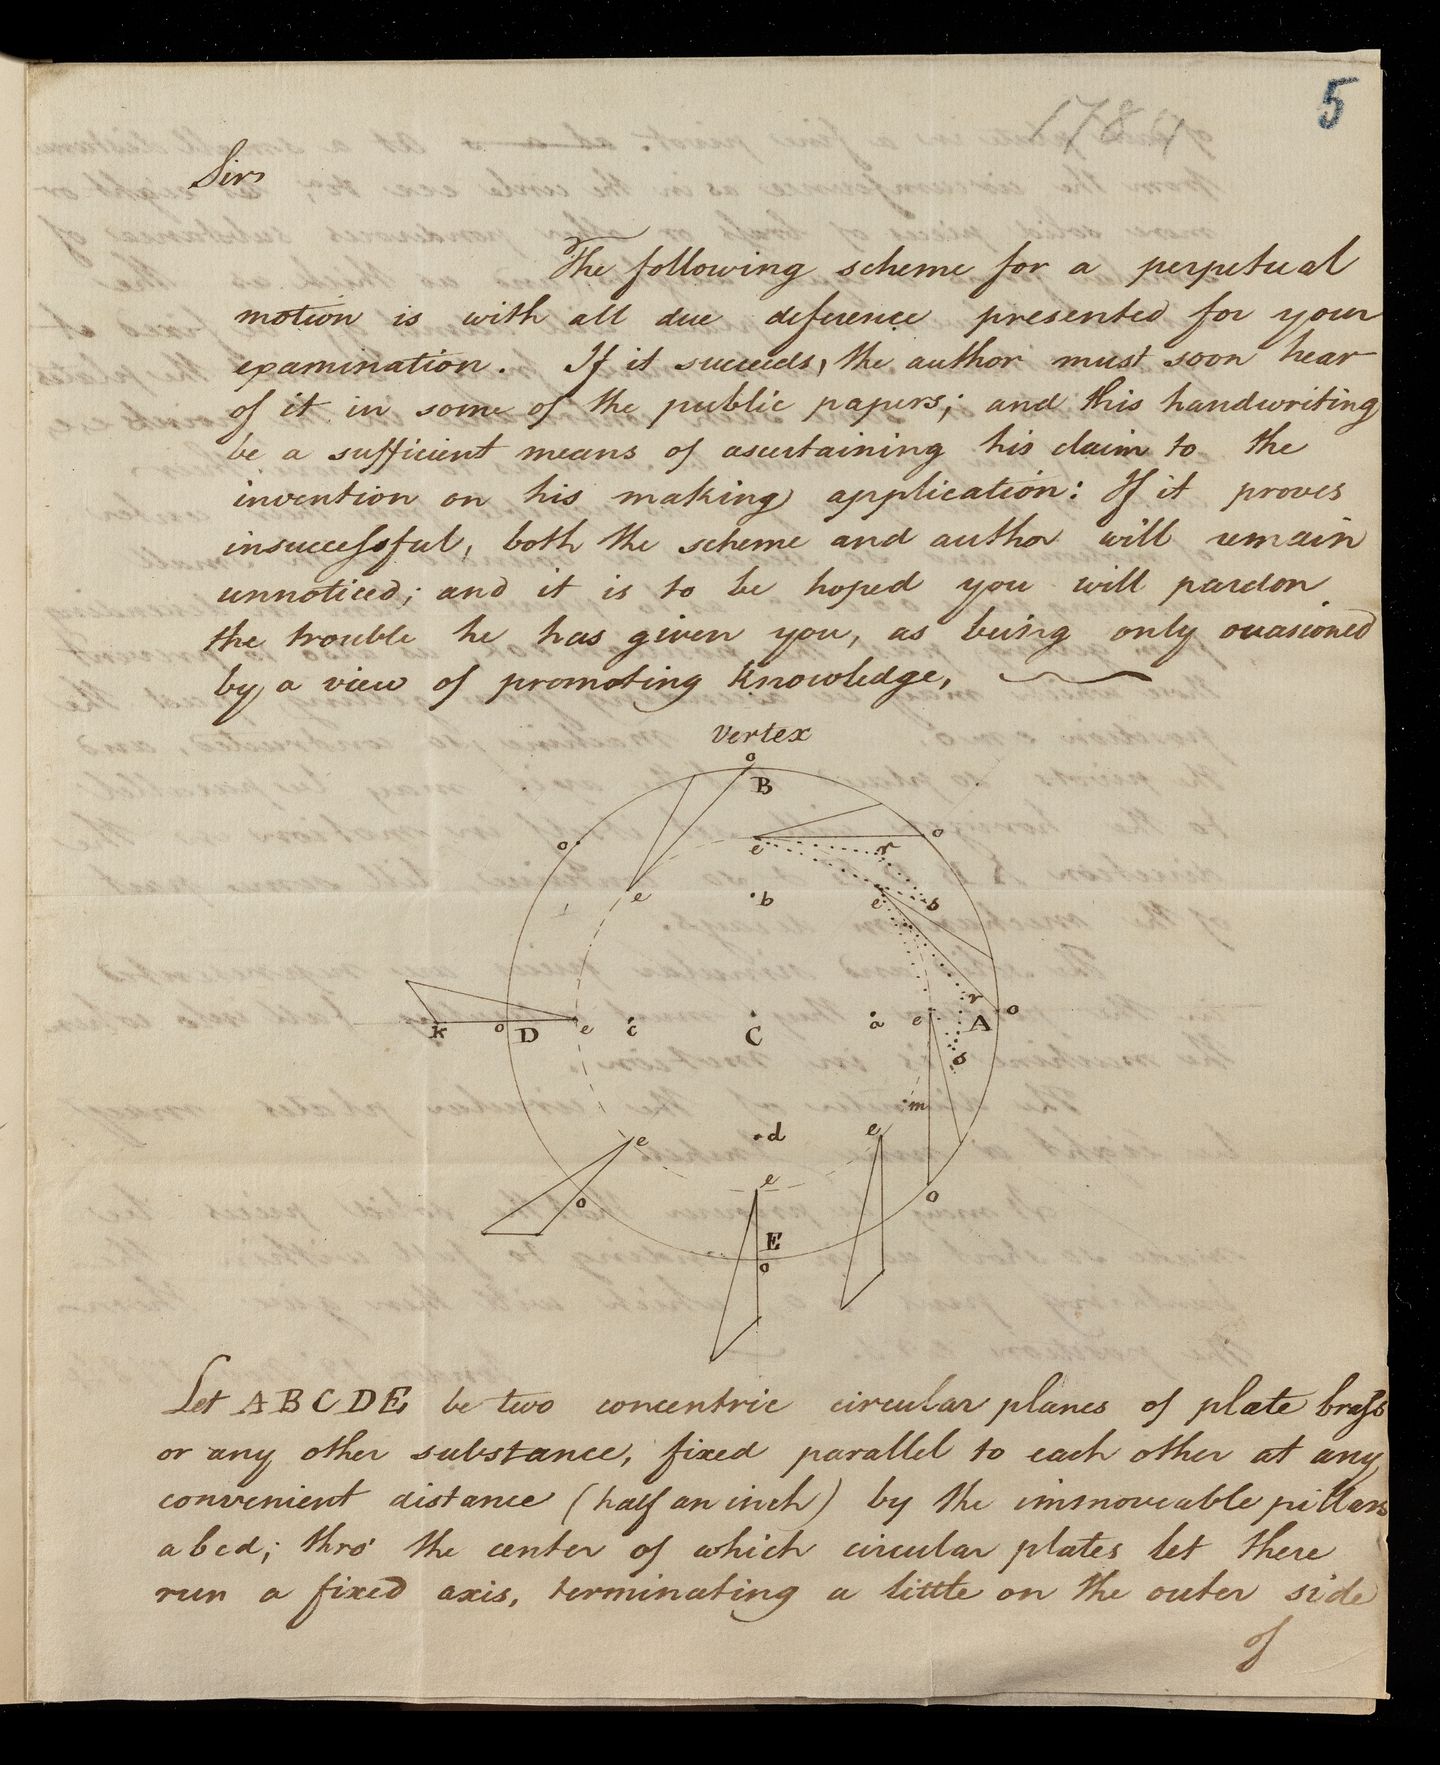 5
1784
Sir,
The following scheme for a perpetual
motion is with all due deference presented for your
examination. If it succeeds, the author must soon hear
of it in some of the public papers; and this handwriting
be a sufficient means of ascertaining his claim to the
invention on his making application: If it proves
insuccessful, both the scheme and author will remain
unnoticed; and it is to be hoped you will pardon
the trouble he has given you, as being only occasioned
by a view of promoting knowledge,
Vertex
o
B
o
o
e
r
e
b
e
s
r
K
o
D
e
c
C
a
e
A
o
s
m
e
d
e
o
e
o
E
o
Let ABCDE be two concentric circular planes of plate brass
or any other substance, fixed parallel to each other at any
convenient distance (half an inch) by the immoveable pillars
abcd; thro' the center of which circular plates let there
run a fixed axis, terminating a little on the outer side
of